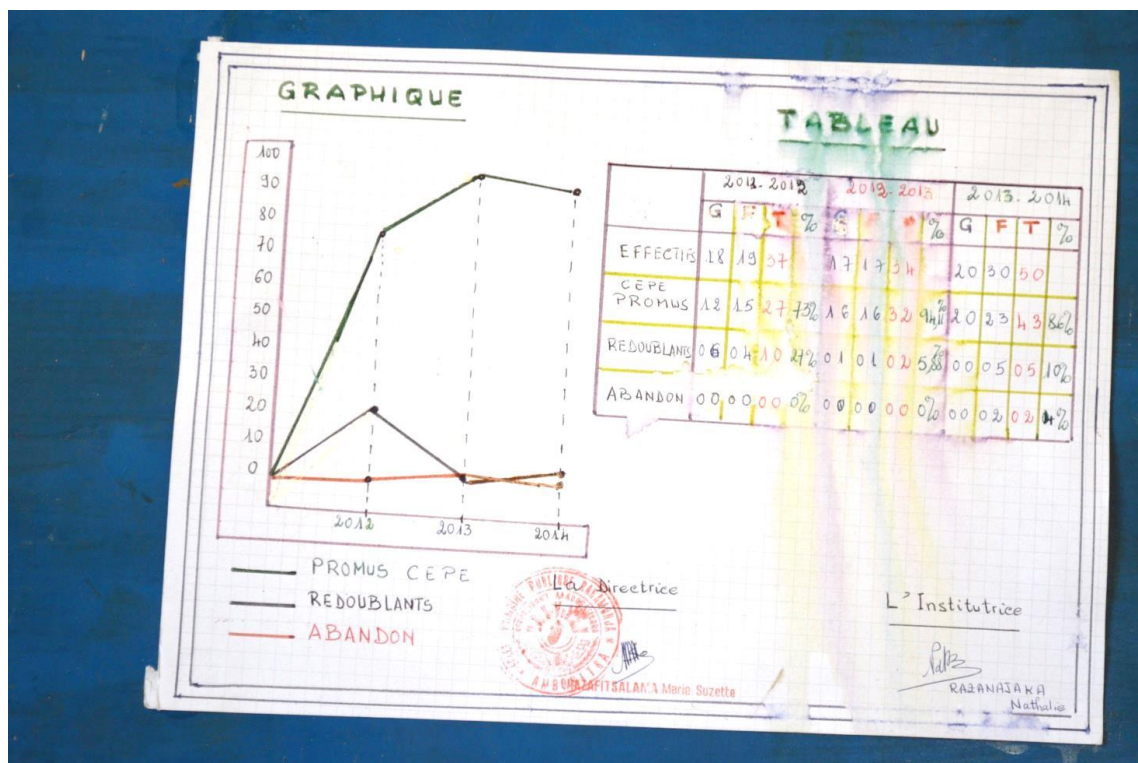 GRAPHIQUE
100
90
80
70
60
50
40
30
20
10
0
2012
2013
2014
PROMUS CEPE
REDOUBLANTS
ABANDON
TABLEAU
2011-2012 2012-2013 2013-2014
G F T % G F % G F T %
EFFECTIFS 18 19 37 17 17 34 20 30 50
CEPE
PROMUS 12 15 27 73% 16 16 32 94,11% 20 23 43 86%
REDOUBLANTS 06 04 10 27% 01 01 02 5,88% 00 05 05 10%
ABANDON 00 00 00 0% 00 00 00 0% 00 02 02 4%
La Directrice
Marie Suzette
L'Institutrice
RAZANAJAKA
Nathalie